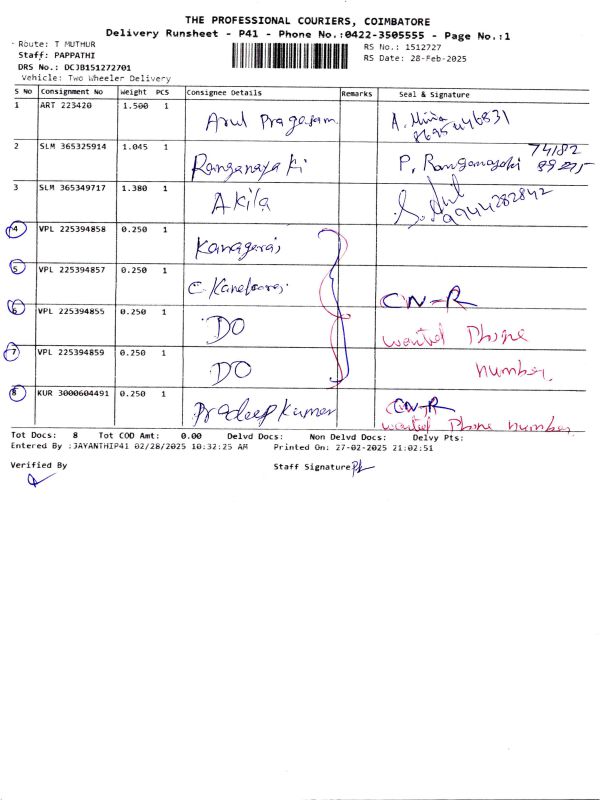 THE PROFESSIONAL COURIERS, COIMBATORE
Delivery Runsheet - P41 - Phone No.:0422-3505555 - Page No.:1
Route: T MUTHUR
RS No.: 1512727
Staff: PAPPATHI
RS Date: 28-Feb-2025
DRS No.: DCJB151272701
Vehicle: Two Wheeler Delivery
S No Consignment No Weight PCS Consignee Details Remarks Seal & Signature
1 ART 223420 1.500 1 Arul Pragasam
2 SLM 365325914 1.045 1 Ranganayaki P. Ranganayaki
3 SLM 365349717 1.380 1 Akila 9944282842
4 VPL 225394858 0.250 1 Kanagaraj
5 VPL 225394857 0.250 1 CN-R
6 VPL 225394855 0.250 1 DO wanted Phone
7 VPL 225394859 0.250 1 DO number.
8 KUR 3000604491 0.250 1 Pradeep Kumar CN-R
wanted Phone number.
Tot Docs: 8 Tot COD Amt: 0.00 Delvd Docs: Non Delvd Docs: Delvy Pts:
Entered By :JAYANTHIP41 02/28/2025 10:32:25 AM Printed On: 27-02-2025 21:02:51
Verified By Staff Signature